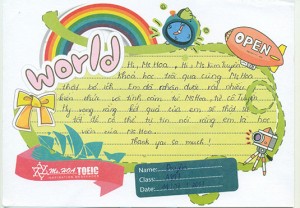 world
OPEN
Hi, Ms Hoa, Hi, Ms Kim Tuyến
Khoá học trải qua cùng Ms Hoa
thật bổ ích. Em đã nhận được rất nhiều
kiến thức và tình cảm từ Ms Hoa, từ cô Tuyến
Hy vọng rằng kết quả của em sẽ thật
tốt để có thể tự tin nói rằng em là học
viên của Ms Hoa.
Thank you so much!
Ms. HOA TOEIC
Name:
Class:
Date: